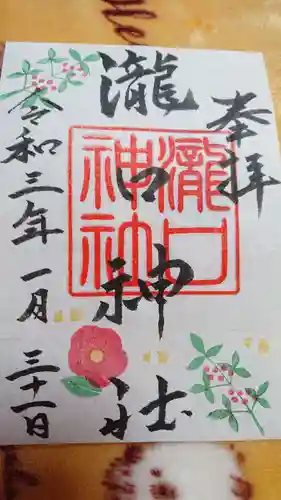 奉拝
瀧口神社
瀧口神社
令和三年一月三十一日